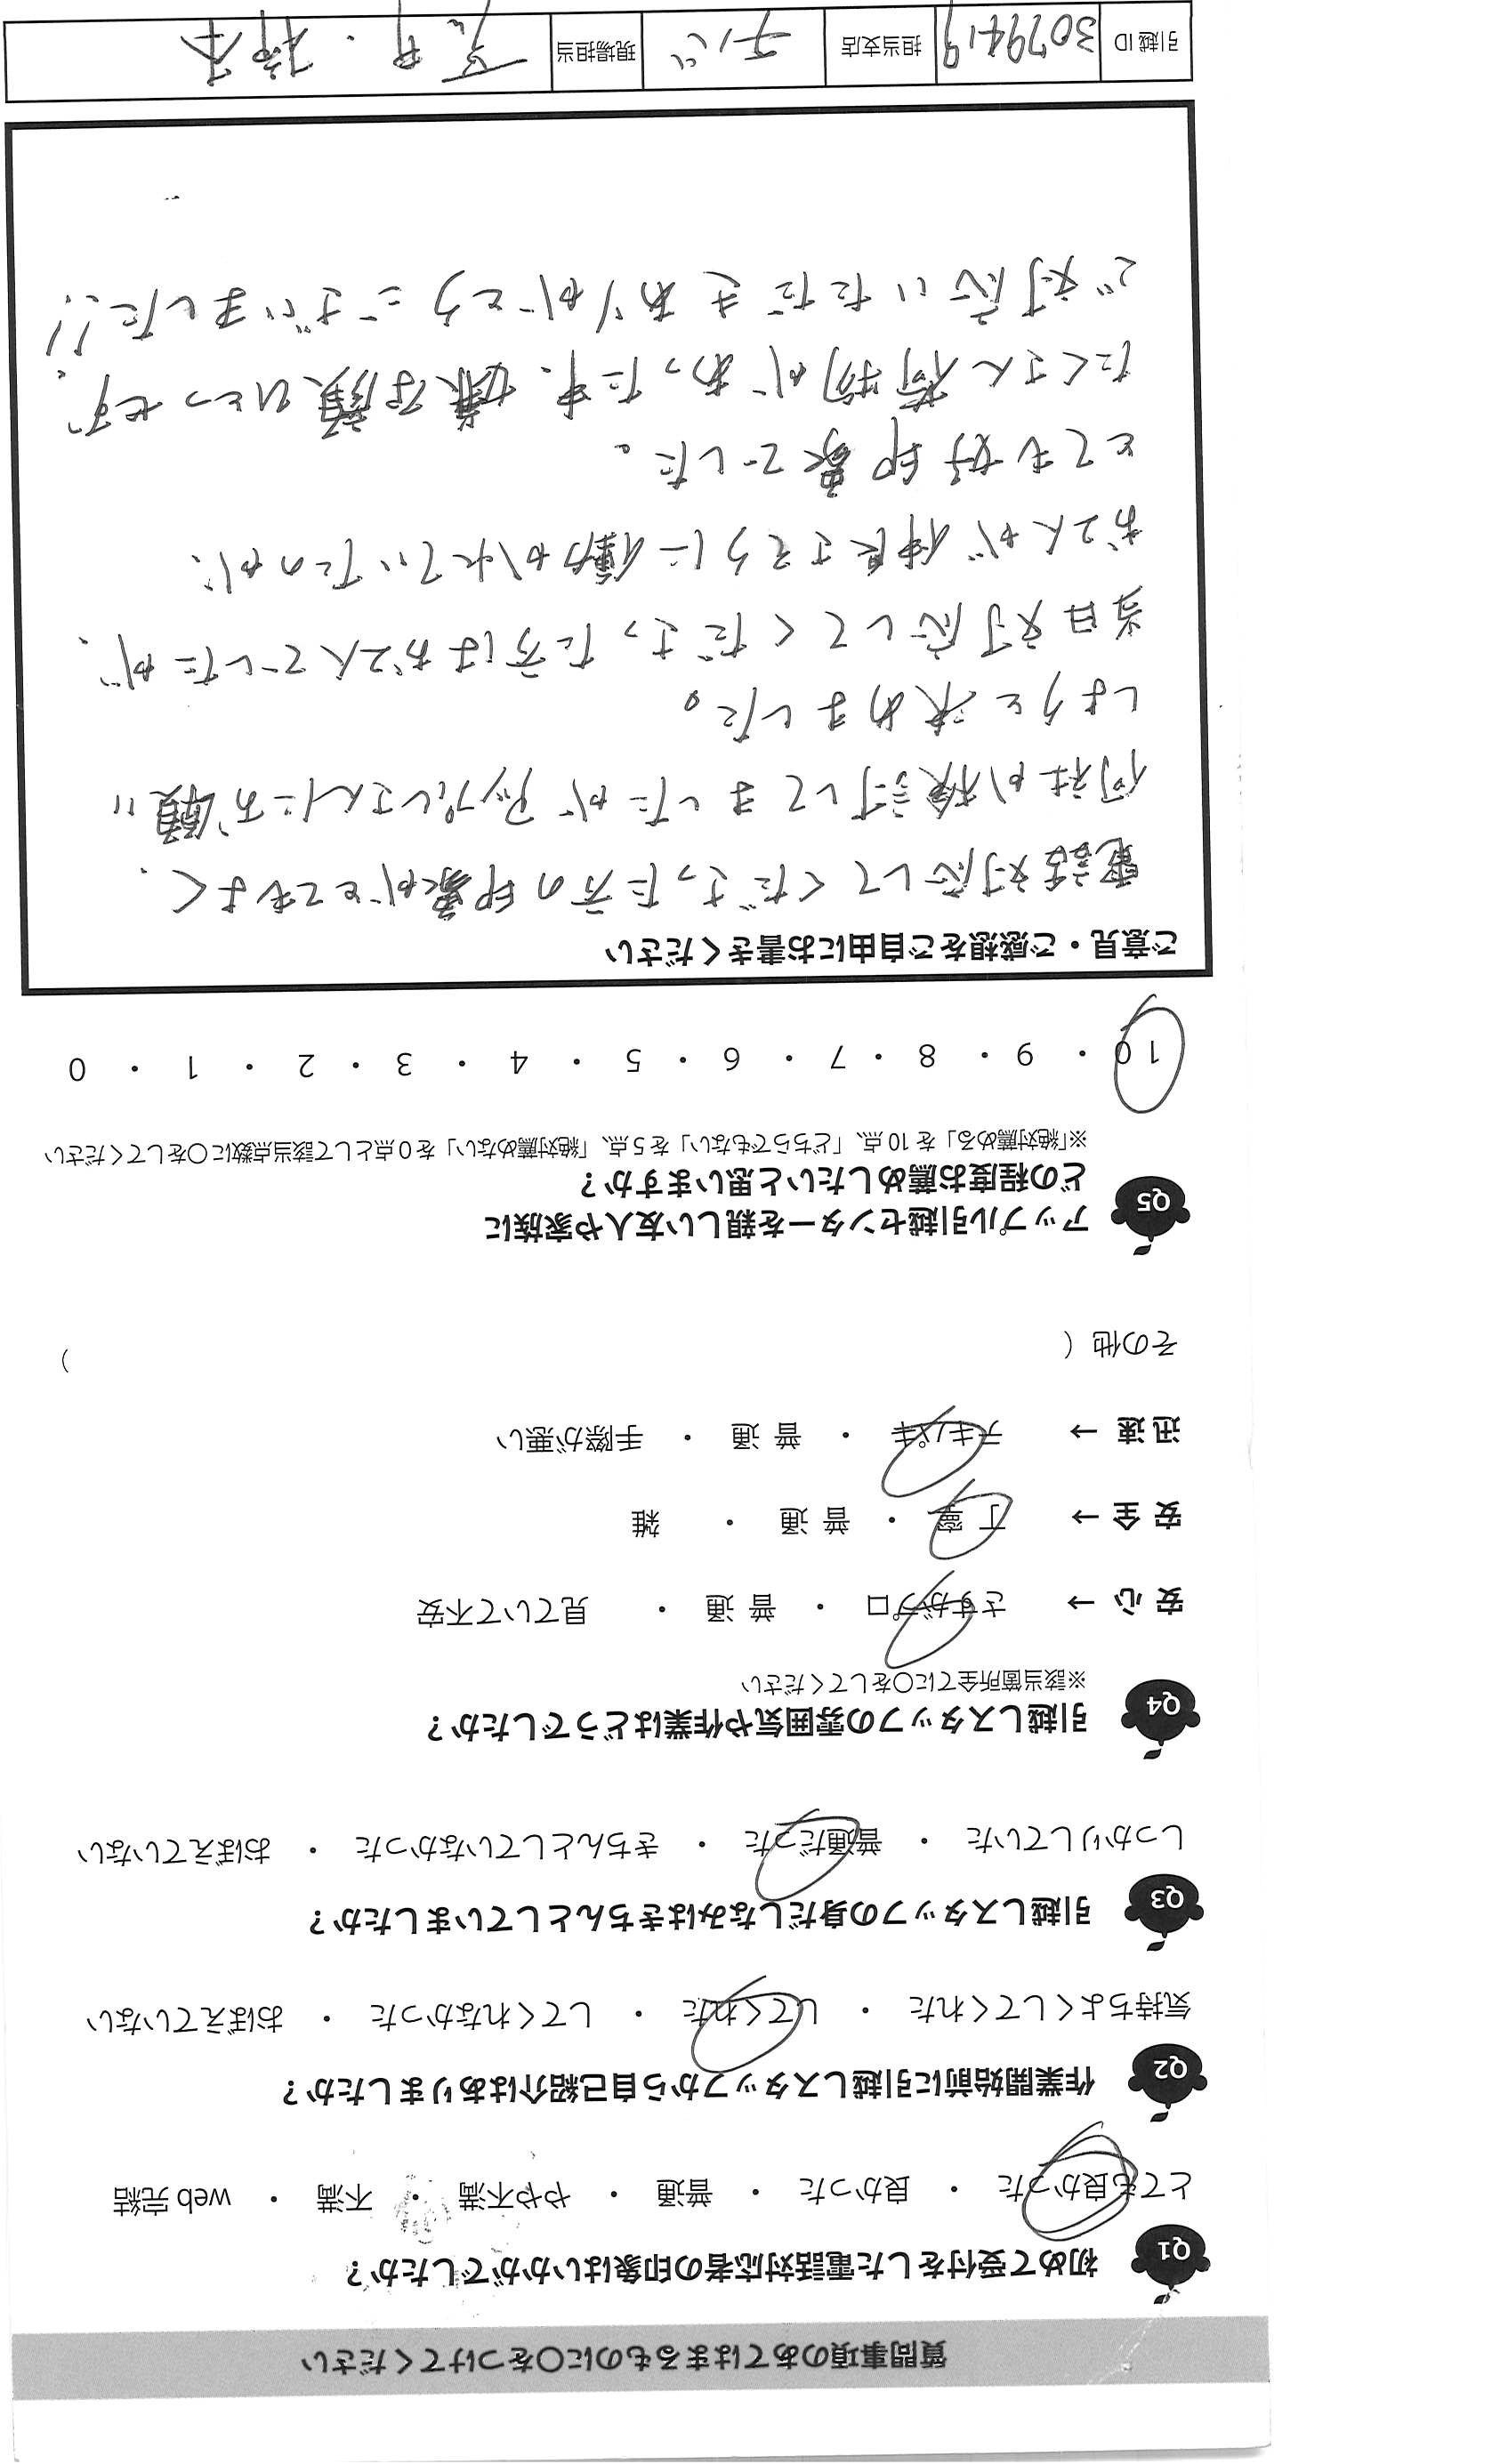 質問事項のあてはまるものに〇をつけてください
Q1 初めて受付をした電話対応者の印象はいかがでしたか？
とても良かった ・ 良かった ・ 普通 ・ やや不満 ・ 不満 ・ web 完結
Q2 作業開始前に引越しスタッフから自己紹介はありましたか？
気持ちよくしてくれた ・ してくれた ・ してくれなかった ・ おぼえていない
Q3 引越しスタッフの身だしなみはきちんとしていましたか？
しっかりしていた ・ 普通だった ・ きちんとしていなかった ・ おぼえていない
Q4 引越しスタッフの雰囲気や作業はどうでしたか？
※該当箇所全てに〇をしてください
安心 → さすがプロ ・ 普通 ・ 見ていて不安
安全 → 丁寧 ・ 普通 ・ 雑
迅速 → テキパキ ・ 普通 ・ 手際が悪い
その他（ ）
Q5 アップル引越センターを親しい友人や家族に
どの程度お薦めしたいと思いますか？
※「絶対薦める」を 10 点、「どちらでもない」を 5 点、「絶対薦めない」を 0 点として該当点数に〇をしてください
10 ・ 9 ・ 8 ・ 7 ・ 6 ・ 5 ・ 4 ・ 3 ・ 2 ・ 1 ・ 0
ご意見・ご感想をご自由にお書きください
電話対応してくださった方の印象がとてもよく、
何社か検討してましたがアップルさんにお願い
しようと決めました。
当日対応してくださった方はお2人でしたが、
お2人が仲良さそうに働かれていたのが、
とても好印象でした。
たくさん荷物があった中、嫌な顔ひとつせず、
ご対応いただきありがとうございました!!
引越 ID 3079419 担当支店 チバ 現場担当